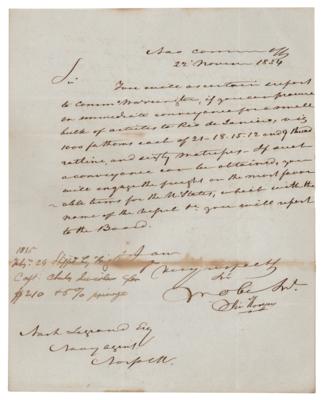 Nav comm Off
22 Novem 1824
Sir
You will ascertain & report
to Comm Warrington, if you can procure
an immediate conveyance for a small
bulk of articles to Rio de Janeiro, viz
1000 fathoms each of 21-18-15-12 and 9 thread
ratline, and sixty matrasses - If such
a conveyance can be obtained, you
will engage the freight on the most favor
able terms for the U States, which with the
name of the Vessel &c you will report
to the Board.
I am
very respectfy
Sir
1825
Feby 24 Shipd by
Capt. Chas
$210 + 5 % primage
Nash Legrand Esq
Navy agent
Norfolk